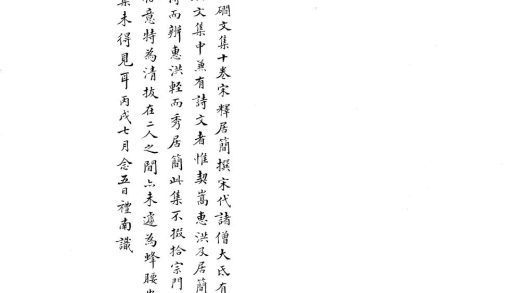 磵文集十卷宋釋居簡撰宋代諸僧大氐有
文集中兼有詩文者惟契嵩惠洪及居簡
而辨惠洪輕而秀居簡此集不掇拾宗門
意特為清拔在二人之間亦未遽為蜂腰
集未得見耳丙戌七月念五日禮南識